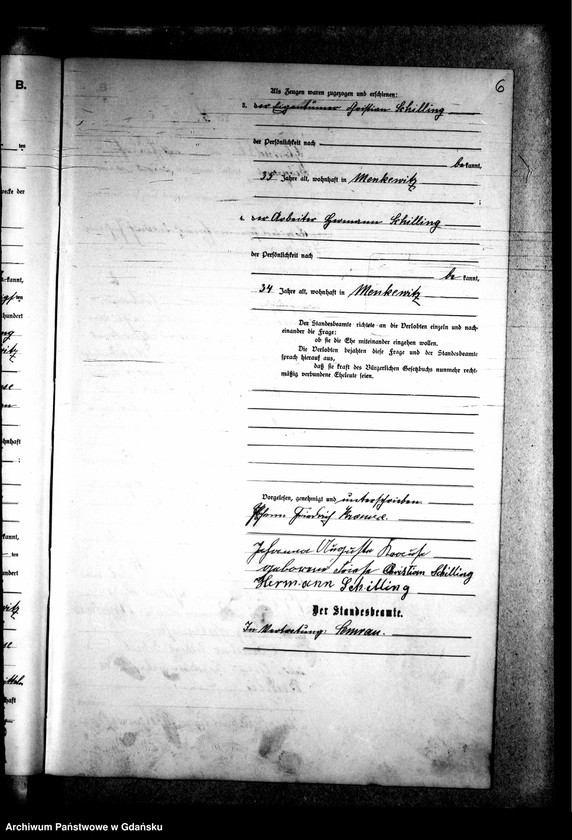 B.
6
Als Zeugen waren zugezogen und erschienen:
3. der Eigentümer Christian Schilling
der Persönlichkeit nach
bekannt,
35 Jahre alt, wohnhaft in Menkewitz
;
4. der Arbeiter Hermann Schilling
der Persönlichkeit nach
be kannt,
34 Jahre alt, wohnhaft in Menkewitz
Der Standesbeamte richtete an die Verlobten einzeln und nach-
einander die Frage:
ob sie die Ehe miteinander eingehen wollen.
Die Verlobten bejahten diese Frage und der Standesbeamte
sprach hierauf aus,
daß sie kraft des Bürgerlichen Gesetzbuchs nunmehr recht-
mäßig verbundene Eheleute seien.
Vorgelesen, genehmigt und unterschrieben.
Johann Friedrich
Johanna Auguste Krause
geborene Christian Schilling
Hermann Schilling
Der Standesbeamte.
In Vertretung: Semrau.
Archiwum Państwowe w Gdańsku